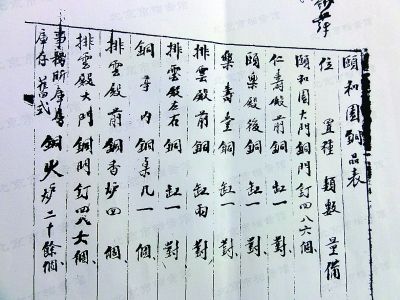 頤和園銅品表
位置種類數量備
頤和園大門銅門釘四八六個
仁壽殿前銅缸一對
頤樂殿後銅缸一對
樂壽堂銅缸一對
排雲殿前銅缸兩對
排雲殿左右銅缸一對
銅亭內銅桌几一個
排雲殿前銅香炉四個
排雲殿大門銅門釘四八個
事務所庫房
庫存舊式銅火炉二十餘個